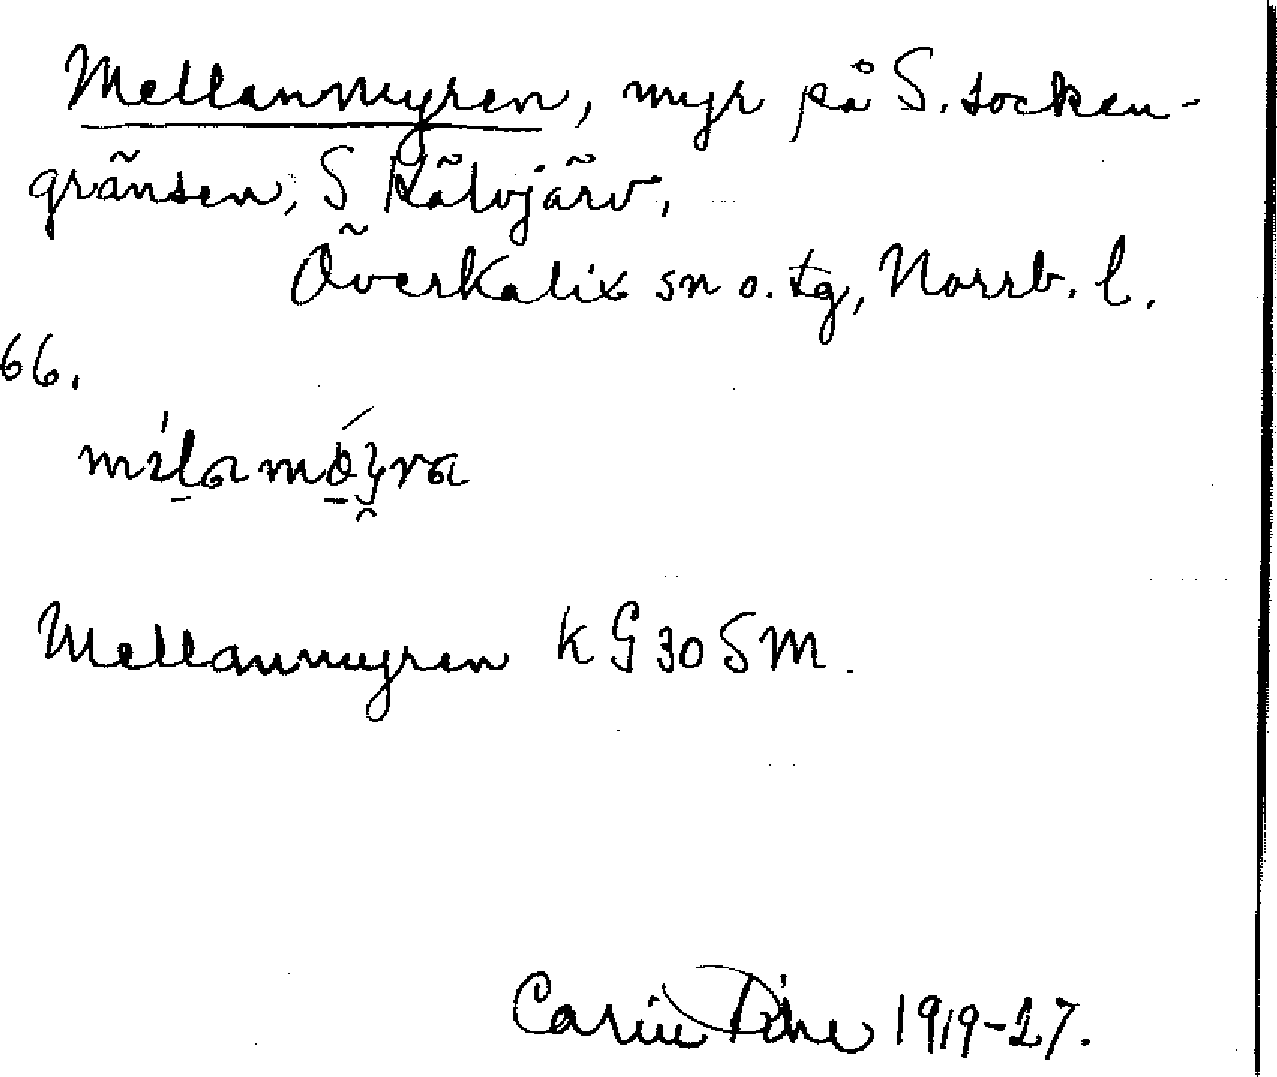 Mellanmyren, myr på S. socken-
gränsen, S Kälvjärv,
Överkalix sn o. tg, Norrb. l.
66.
Mellanmyren K G 30 S M.
Carin Pihl 1919-27.